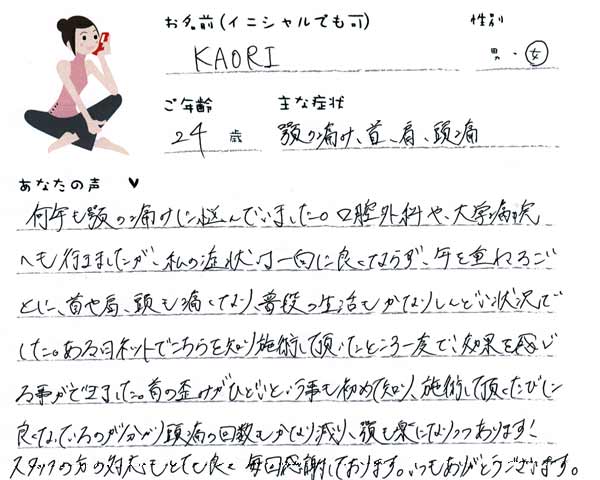 お名前(イニシャルでも可) 性別
KAORI 男・女
ご年齢 主な症状
24 歳 顎の痛み、首、肩、頭痛
あなたの声 ♥
何年も顎の痛みに悩んでいました。口腔外科や、大学病院
へも行きましたが、私の症状は一向に良くならず、年を重ねるご
とに、首や肩、頭も痛くなり、普段の生活もかなりしんどい状況で
した。ある日ネットでこちらを知り、施術して頂いたところ一度で、効果を感じ
る事ができました。首の歪みがひどいという事も初めて知り、施術して頂くたびに
良くなっているのが分かり頭痛の回数もかなり減り、顎も楽になりつつあります!
スタッフの方の対応もとても良く毎回感謝しております。いつもありがとうございます。